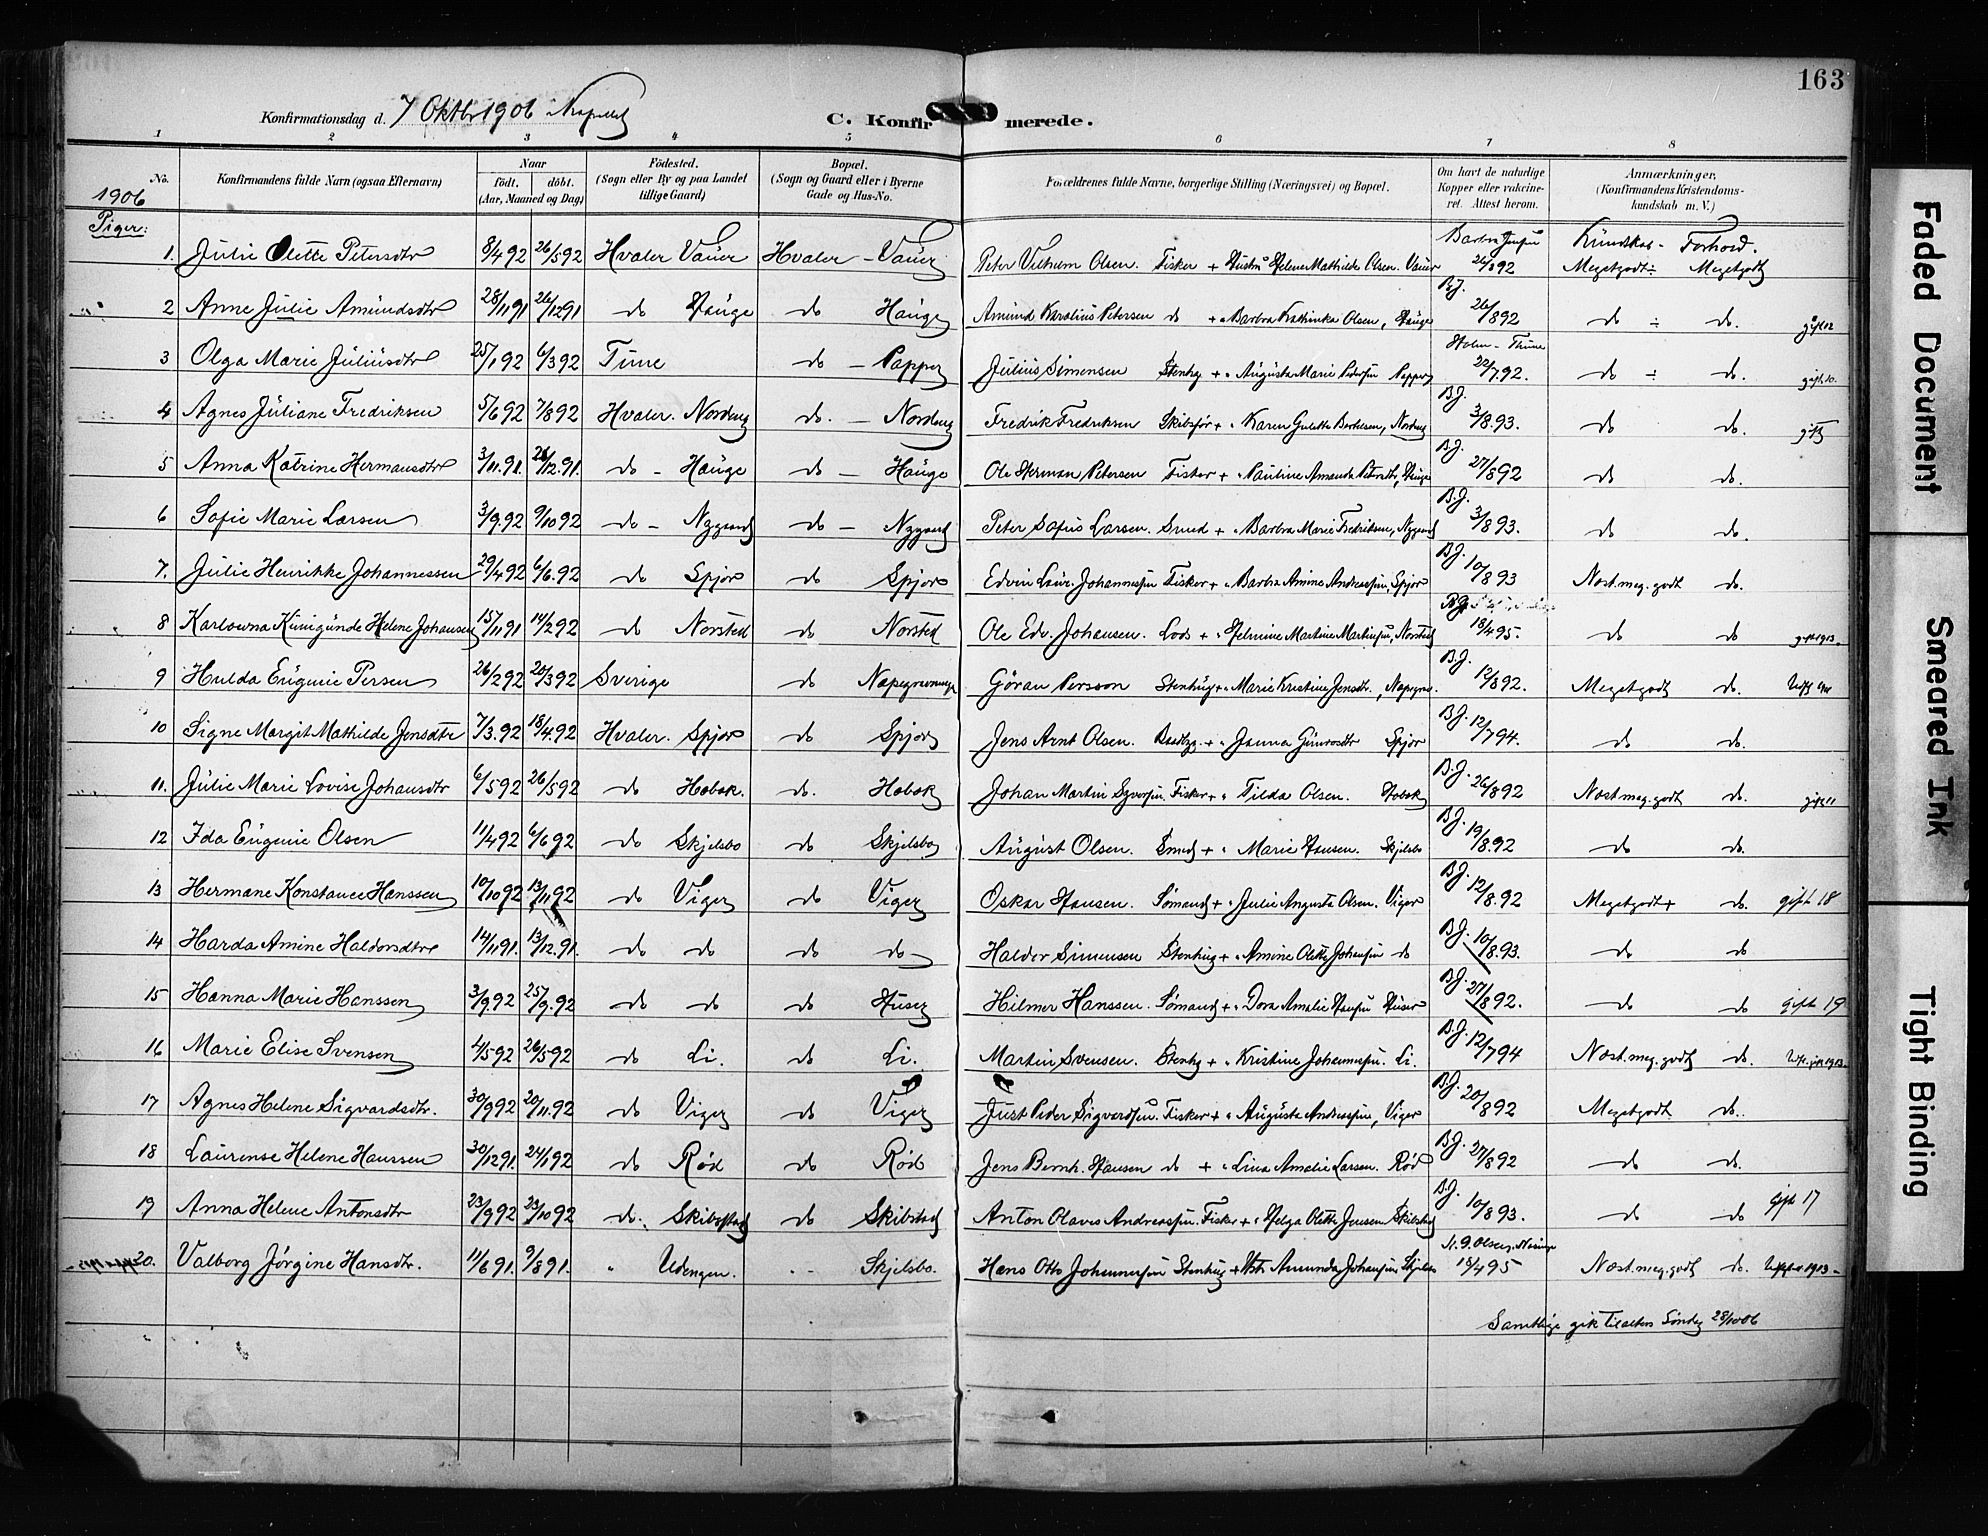 163
Konfirmationsdag d. 7 Oktbr 1906
C. Konfirmerede.
1 2 3 4 5 6 7 8
No. Konfirmandens fulde Navn (ogsaa Efternavn) Naar født. døbt. (Aar, Maaned og Dag) Fødested. (Sogn eller By og paa Landet tillige Gaard) Bopæl. (Sogn og Gaard eller i Byerne Gade og Hus-No. Forældrenes fulde Navne, borgerlige Stilling (Næringsvei) og Bopæl. Om havt de naturlige Kopper eller vakcineret. Attest herom. Anmærkninger, (Konfirmandens Kristendomskundskab m. V.)
1906
Piger:
Kundskab - Forhold.
1. Julie Olette Petersdtr 8/4 92 26/5 92 Hvaler Vauer Hvaler - Vauer Peter Vilhelm Olsen. Fisker + Hustru Helene Mathilde Olsen. Vauer Barbra Jensen 26/8 92 Megetgodt ÷ Megetgodt
2 Anne Julie Amundsdtr 28/11 91 26/12 91 do Hauge do Hauge Amund Karolius Petersen do + " Barbra Kathinka Olsen, Hauge B.J. 26/8 92 do ÷ do. gift 12
3 Olga Marie Juliusdtr 25/1 92 6/3 92 Tune do - Papper Julius Simensen Stenhg + " Augusta Marie Pedersen Papper Holm - Thune 22/7 92. do ÷ do. gift 10.
4 Agnes Juliane Fredriksen 5/6 92 7/8 92 Hvaler. Norderg do. - Norderg Fredrik Fredriksen Skibsfør + " Karen Gulette Bertelsen, Norderg B.J. 3/8 93. do do. gift
5 Anna Katrine Hermansdtr 3/11. 91. 26/12. 91. do - Hauge do - Hauge Ole Herman Petersen Fisker + " Pauline Amanda Petersdtr, Hauge B.J. 27/8 92 do do.
6 Sofie Marie Larsen 3/9. 92 9/10 92 do - Nygaard do - Nygaard Peter Sofus Larsen Smed + " Barbra Marie Fredriksen, Nygaard B.J. 3/8 93. do do.
7. Julie Henrikke Johannessen 29/4 92 6/6. 92 do Spjør do Spjør Edvin Laur. Johannessen Fisker + " Barbra Amine Andreassen, Spjør B.J. 10/8 93 Næst.meg.godt do.
8 Karlowna Kunigunde Helene Johansen 15/11 91 14/2 92 do Norsted do Norsted Ole Edv. Johansen. Lods + " Helmine Martine Martinsen, Norsted B.J. 18/4 95. do do gift 1913.
9 Hulda Eugenie Persen 26/2 92 20/3 92 Sverige do Napegrevninge Göran Persson Stenhug + " Marie Kristine Jensdtr. , Napegrv. B.J. 12/8 92. Megetgodt do.
10 Signe Margit Mathilde Jensdtr 7/3. 92 18/4. 92 Hvaler. Spjør do Spjør Jens Arnt Olsen. Baadbg. + " Janna Gunrosdtr Spjør B.J. 12/7 94. do do.
11. Julie Marie Lovise Johansdtr 6/5 92 26/5 92 do Høbøk. do. Høbøk Johan Martin Syversen. Fisker + " Tilda Olsen. Høbøk B.J. 26/8 92 Næst.meg.godt do. gift 11
12 Ida Eugenie Olsen 11/4 92 6/6 92 do Skjelsbo do Skjelsbo August Olsen. Smed + " Marie Hansen. Skjelsbo B.J. 19/8. 92 do do.
13 Hermane Konstance Hanssen 10/10 92 13/11 92 do Viger do Viger Oskar Hansen. Sømand + " Julie Augusta Olsen. Viger B.J. 12/8. 92 Megetgodt + do. gift 18
14 Harda Amine Haldorsdtr 14/11 91. 13/12. 91. do do do do Haldor Simensen Stenhug + " Amine Olette Johansen do B.J. 10/8. 93. do do
15 Hanna Marie Hanssen 3/9. 92 25/9. 92 do do do Huser Hilmer Hanssen. Sømand + " Dora Amalie Hansen Huser B.J. 27/8 92. do do gift 19
16 Marie Elise Svensen 4/5 92 26/5 92 do Li. do Li. Martin Svensen. Stenhg + " Kristine Johannessen. Li. B.J. 12/7 94 Næst.meg.godt do.
17 Agnes Helene Sigvardsdtr. 30/9 92 20/11. 92 do Viger do Viger Just Peder Sigvardsen. Fisker + " Augusta Andreassen, Viger B.J. 20/8 92 Megetgodt do.
18 Laurense Helene Hanssen 30/12 91. 24/1 92 do Rød do Rød Jens Bernh. Hansen do + " Lina Amalie Larsen. Rød B.J. 27/8 92 do do.
19 Anna Helene Antonsdtr 23/9 92 23/10 92 do. Skibstad do Skibstad Anton Olaves Andreassen. Fisker + " Helga Olette Jensen Skibstad B.J. 10/8 93. do do Gift 17
20. Valborg Jørgine Hansdtr. 11/6 91. 9/8 91. " Udengen. " Skjelsbo. Hans Otto Johannessen Stenhug + Hstr Amunda Johansen Skjelsbo N. G. Olsen, 18/4 95 Næst.meg.godt do.
Samtlige gik tilalters Søndag 28/10 06
Faded Document
Smeared Ink
Tight Binding